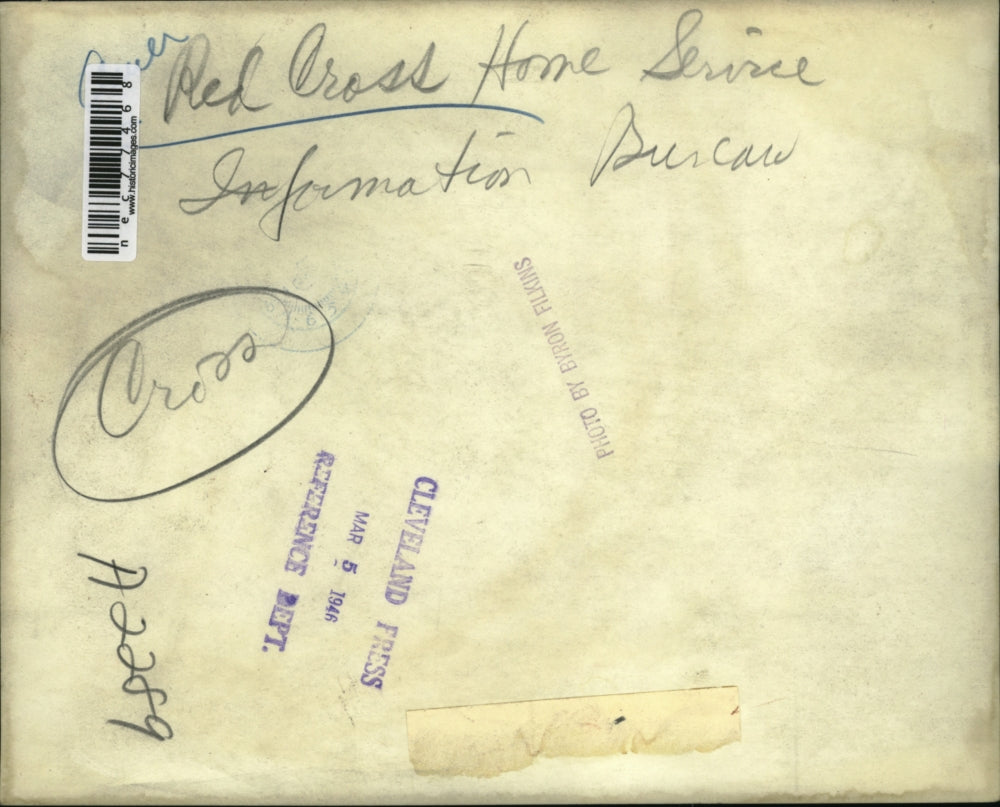 Red Cross Home Service
Information Bureau
nec77468
www.historicimages.com
PHOTO BY BYRON FILKINS
Cross
CLEVELAND PRESS
MAR 5 1946
REFERENCE DEPT.
H2289